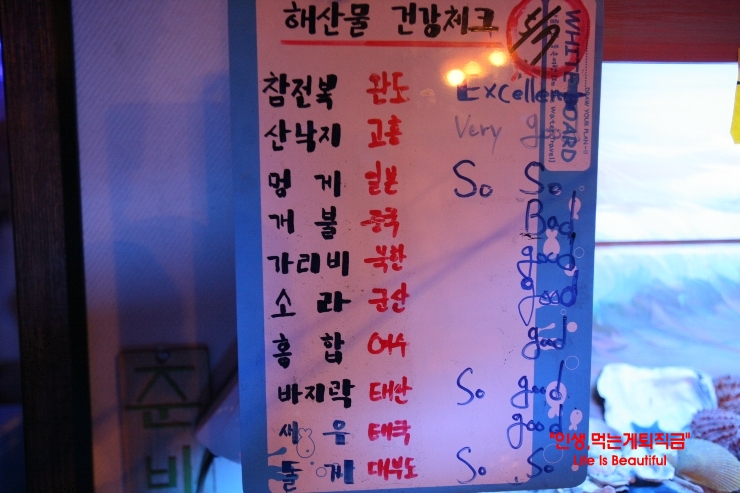 해산물 건강체크
참전복 완도 Excellent
산낙지 고흥 Very g
멍게 일본 So So
개불 중국 Bad
가리비 북한 good
소라 군산 good
홍합 여수 good
바지락 태안 So good
새우 태국 good
돌게 대부도 So So
WHITE BOARD
준비
"인생, 먹는게퇴직금"
Life Is Beautiful